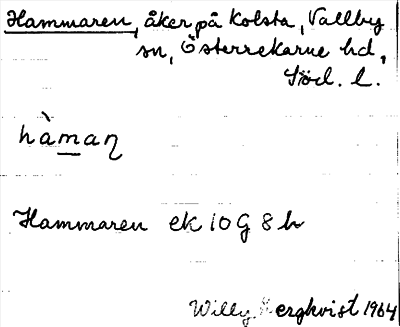 Hammaren, åker på Kolsta, Vallby
sn, Österrekarne hd,
Söd. l.
hàmaη
Hammaren ek 10 G 8 h
Willy Bergkvist 1964